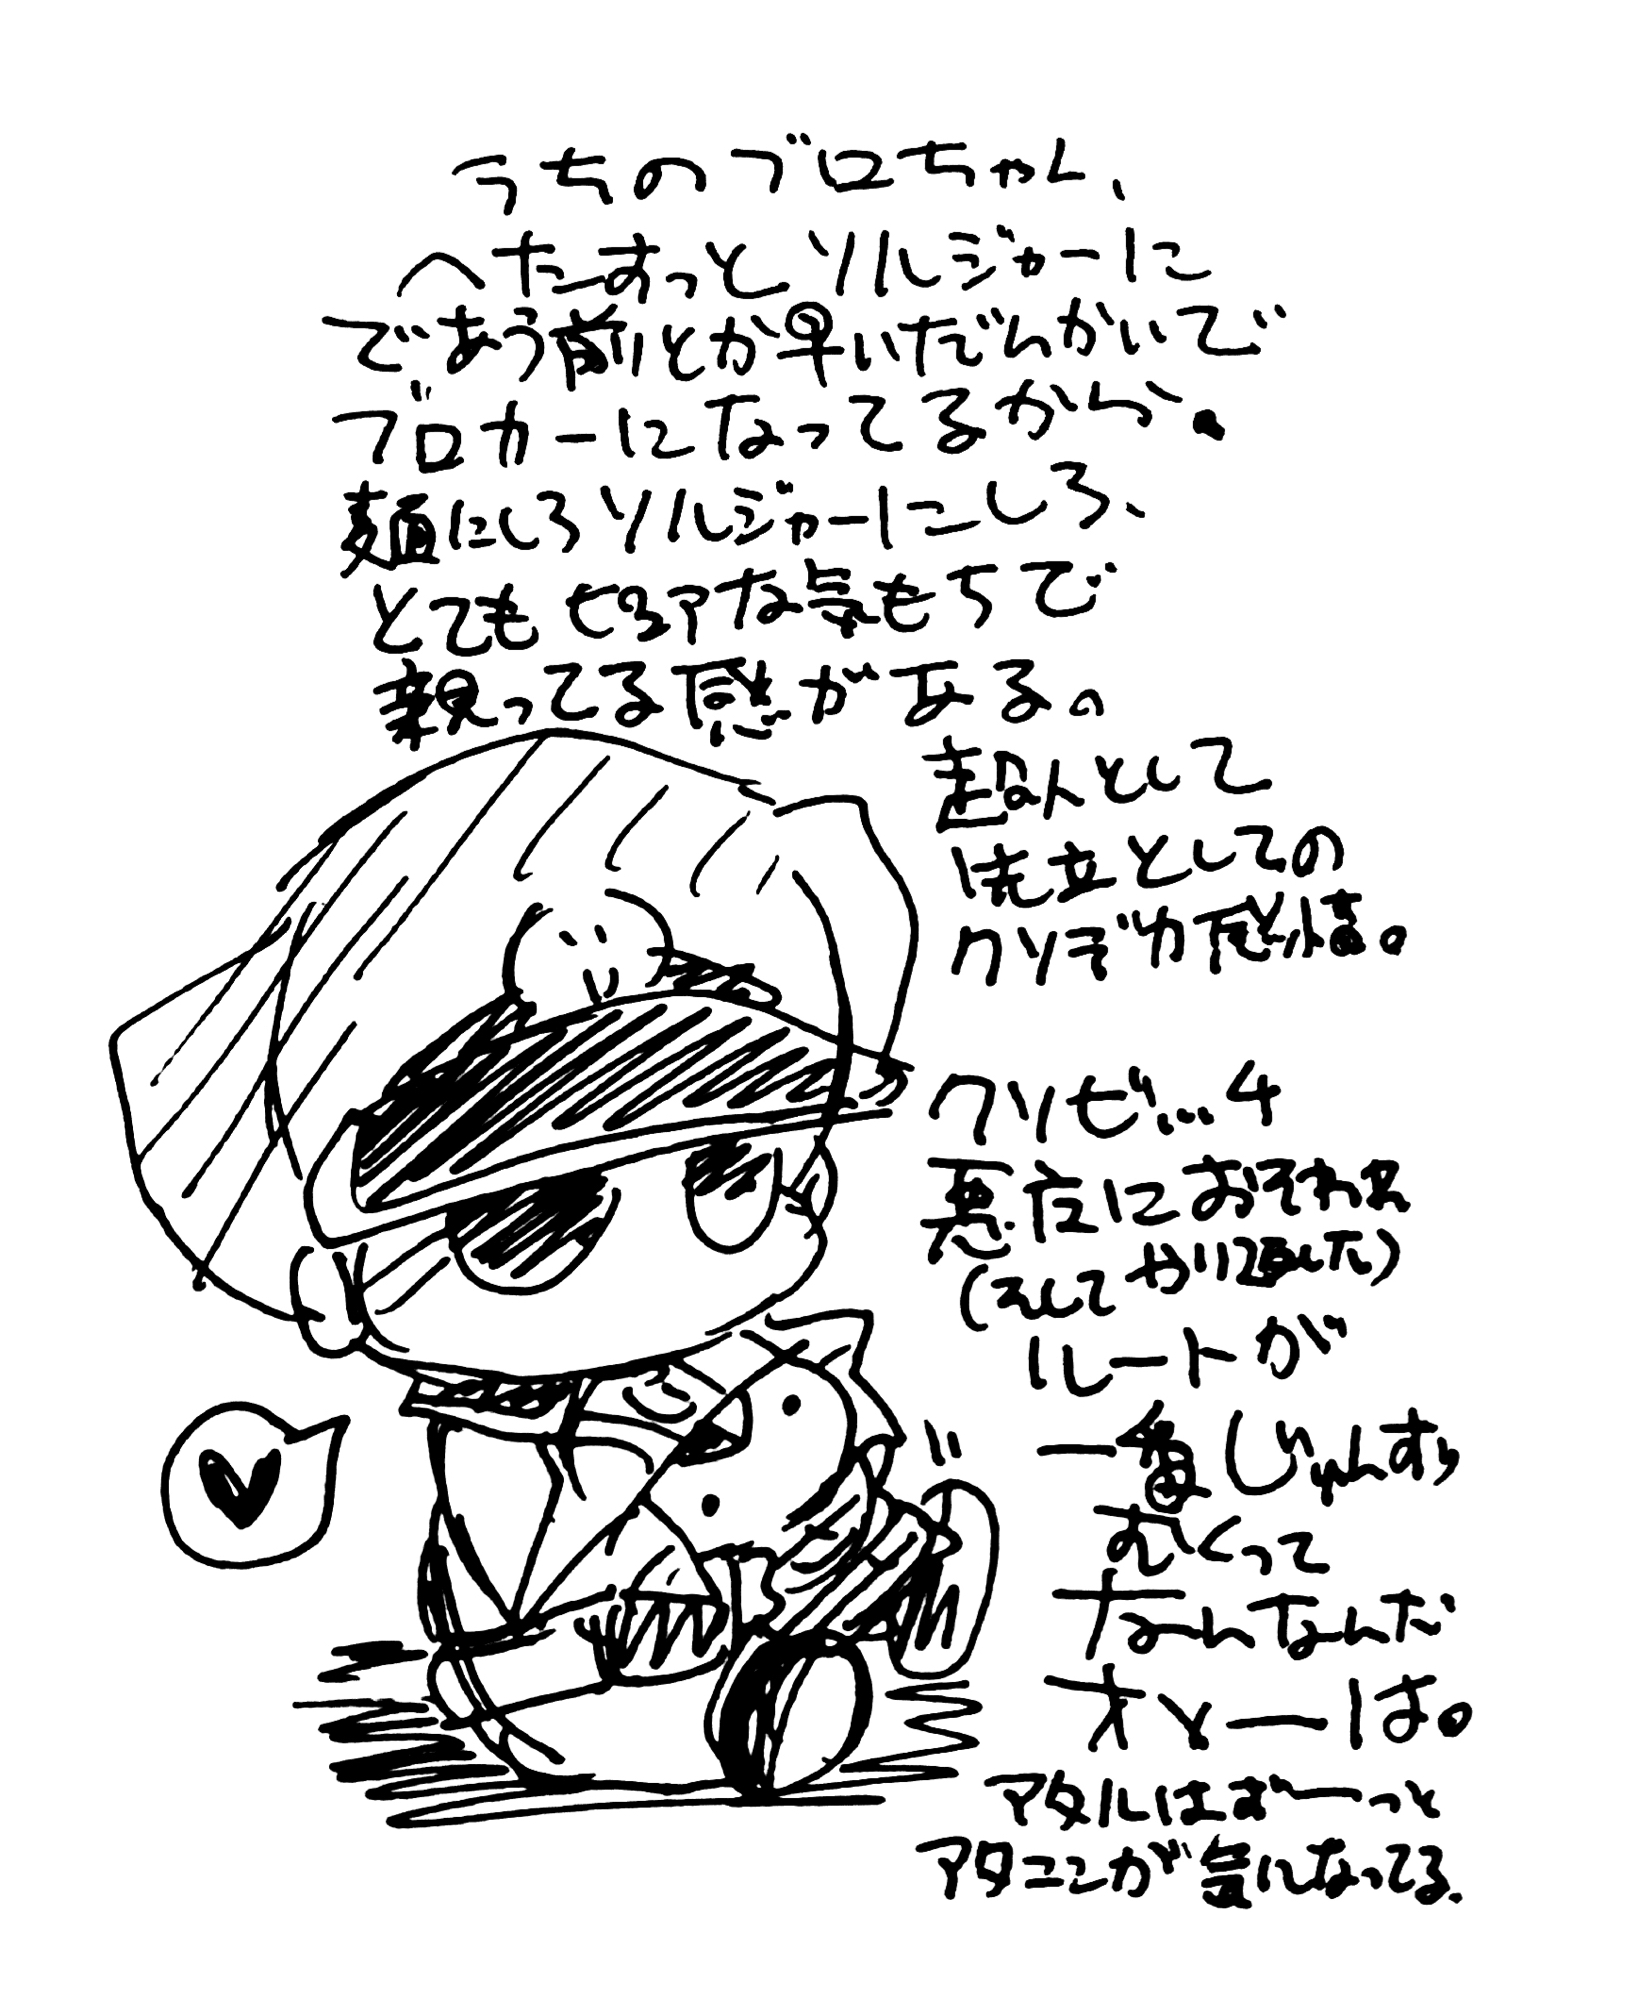 うちのブロちゃん、
へたすっとソルジャーに
であう前とか早いだんかいで
ブロカーになってるから。
麺にしろソルジャーにしろ、
とてもピュアな気もちで
親ってる感がある。
超人として
先立としての
クソデカ感情。
クソセ…4
悪行におそれ
(そしてやり直した)
ルートが
一番じゅんすい
むくって
なんなんだ
オメーは。
アタルはずーっと
アタニンが気になってる。